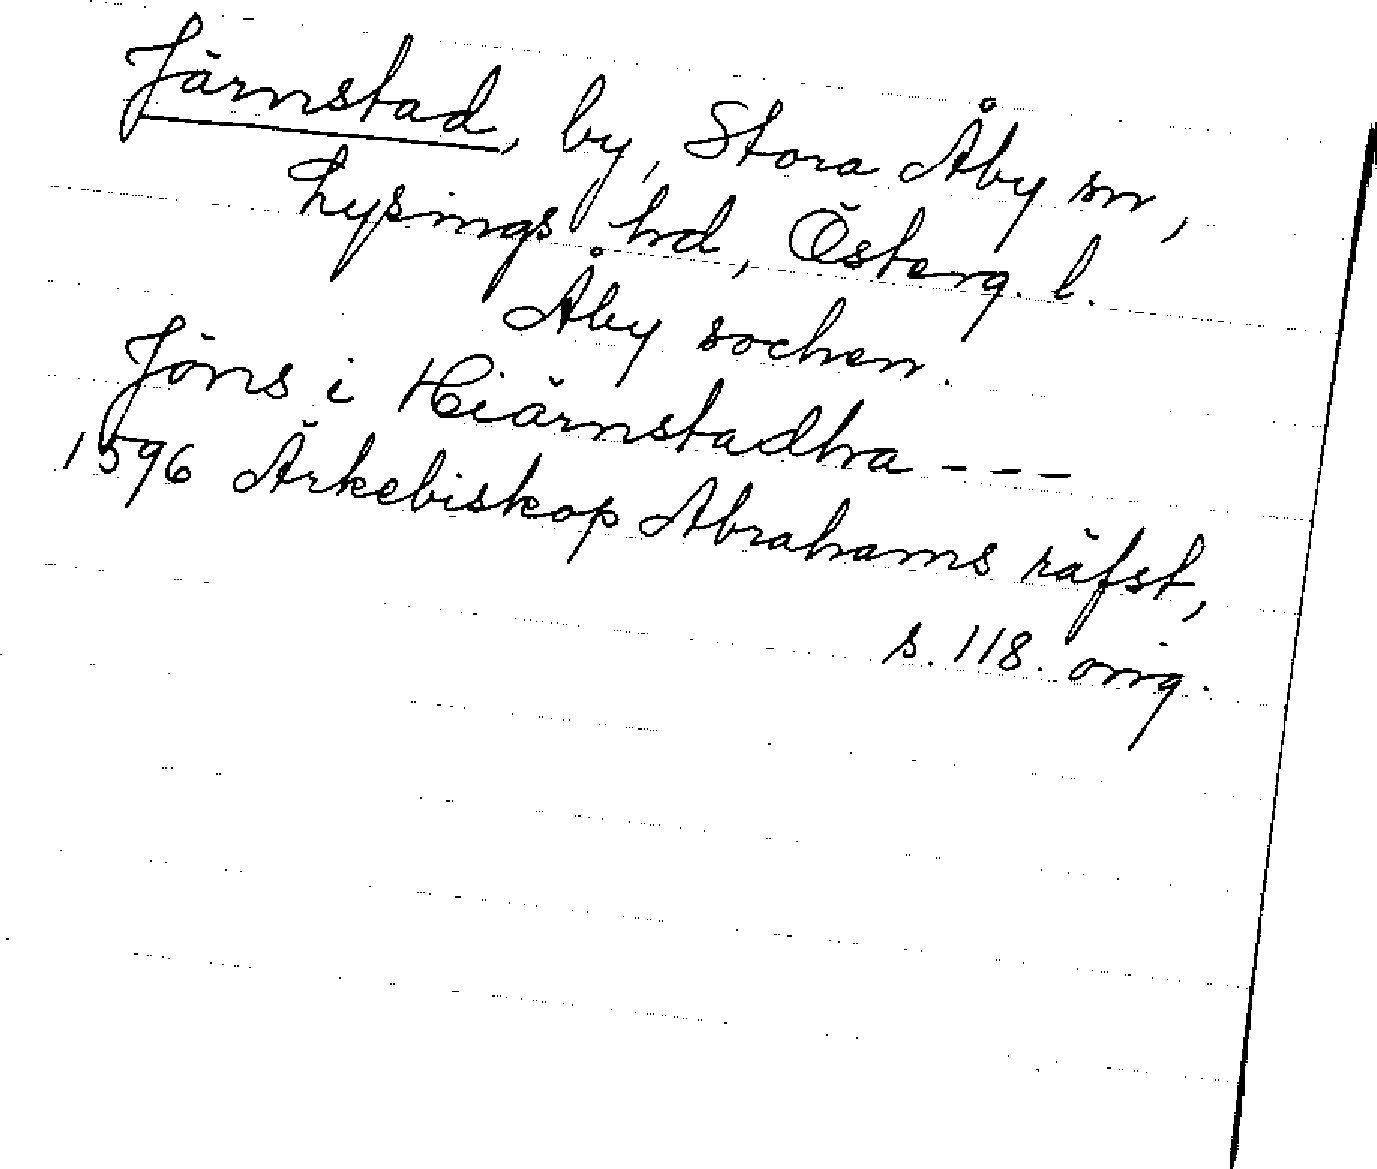 Järnstad, by, Stora Åby sn,
Lysings hd, Österg. l.
Åby sochen.
Jöns i Hiärnstadha - - -
1596 Ärkebiskop Abrahams räfst,
s. 118. orig.